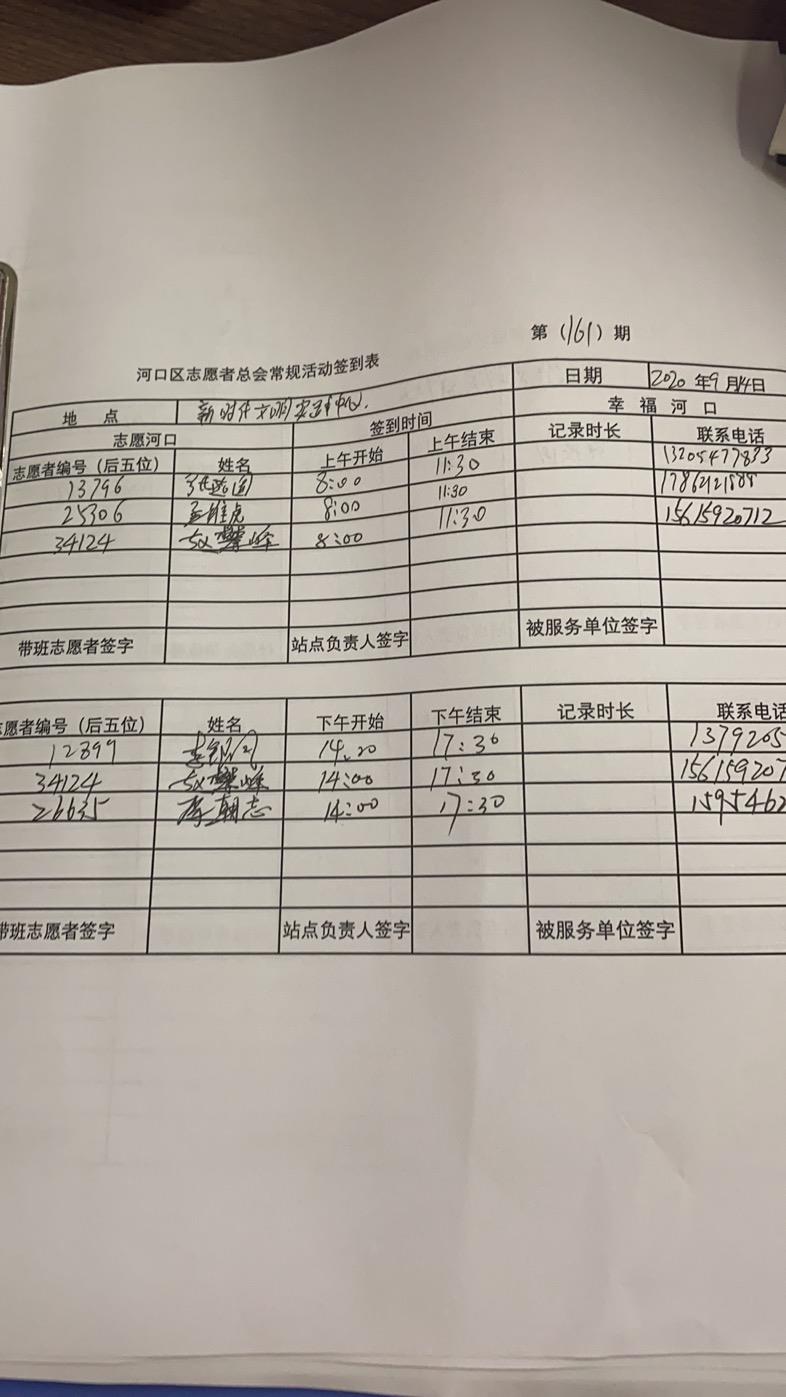 第（161）期
河口区志愿者总会常规活动签到表
日期 2020年9月14日
地点 新时代文明实践中心.
幸福河口
志愿河口 签到时间
志愿者编号（后五位） 姓名 上午开始 上午结束 记录时长 联系电话
13796 8:00 11:30 13205477833
25306 8:00 11:30
34124 8:00 11:30 15615920712
带班志愿者签字 站点负责人签字 被服务单位签字
志愿者编号（后五位） 姓名 下午开始 下午结束 记录时长 联系电话
12899 14:20 17:30 1379205
34124 14:00 17:30 156159207
26635 李朝志 14:00 17:30 1595462
带班志愿者签字 站点负责人签字 被服务单位签字